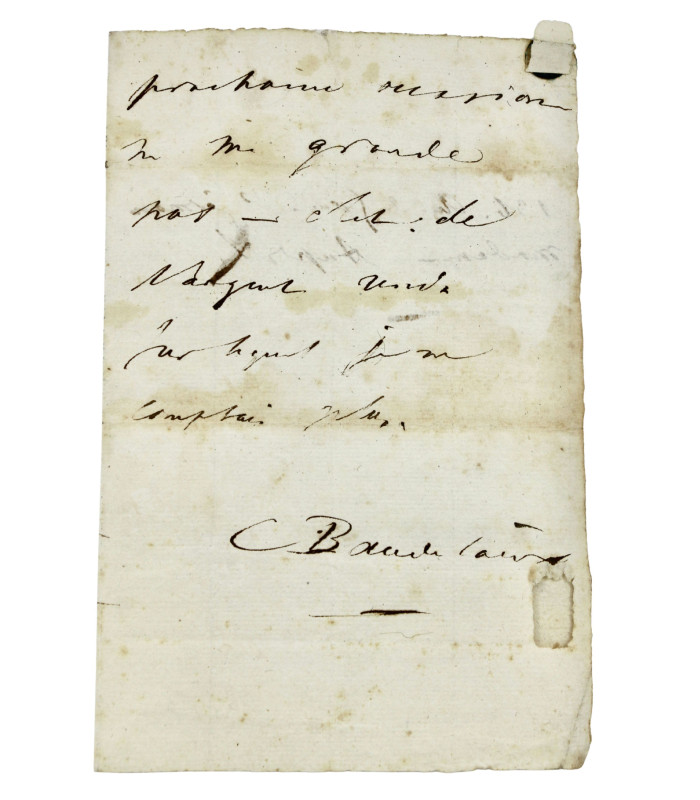 prochaine occasion
ne me gronde
pas — c'est de
l'argent rendu
sur lequel je ne
comptais plus.
C Baudelaire